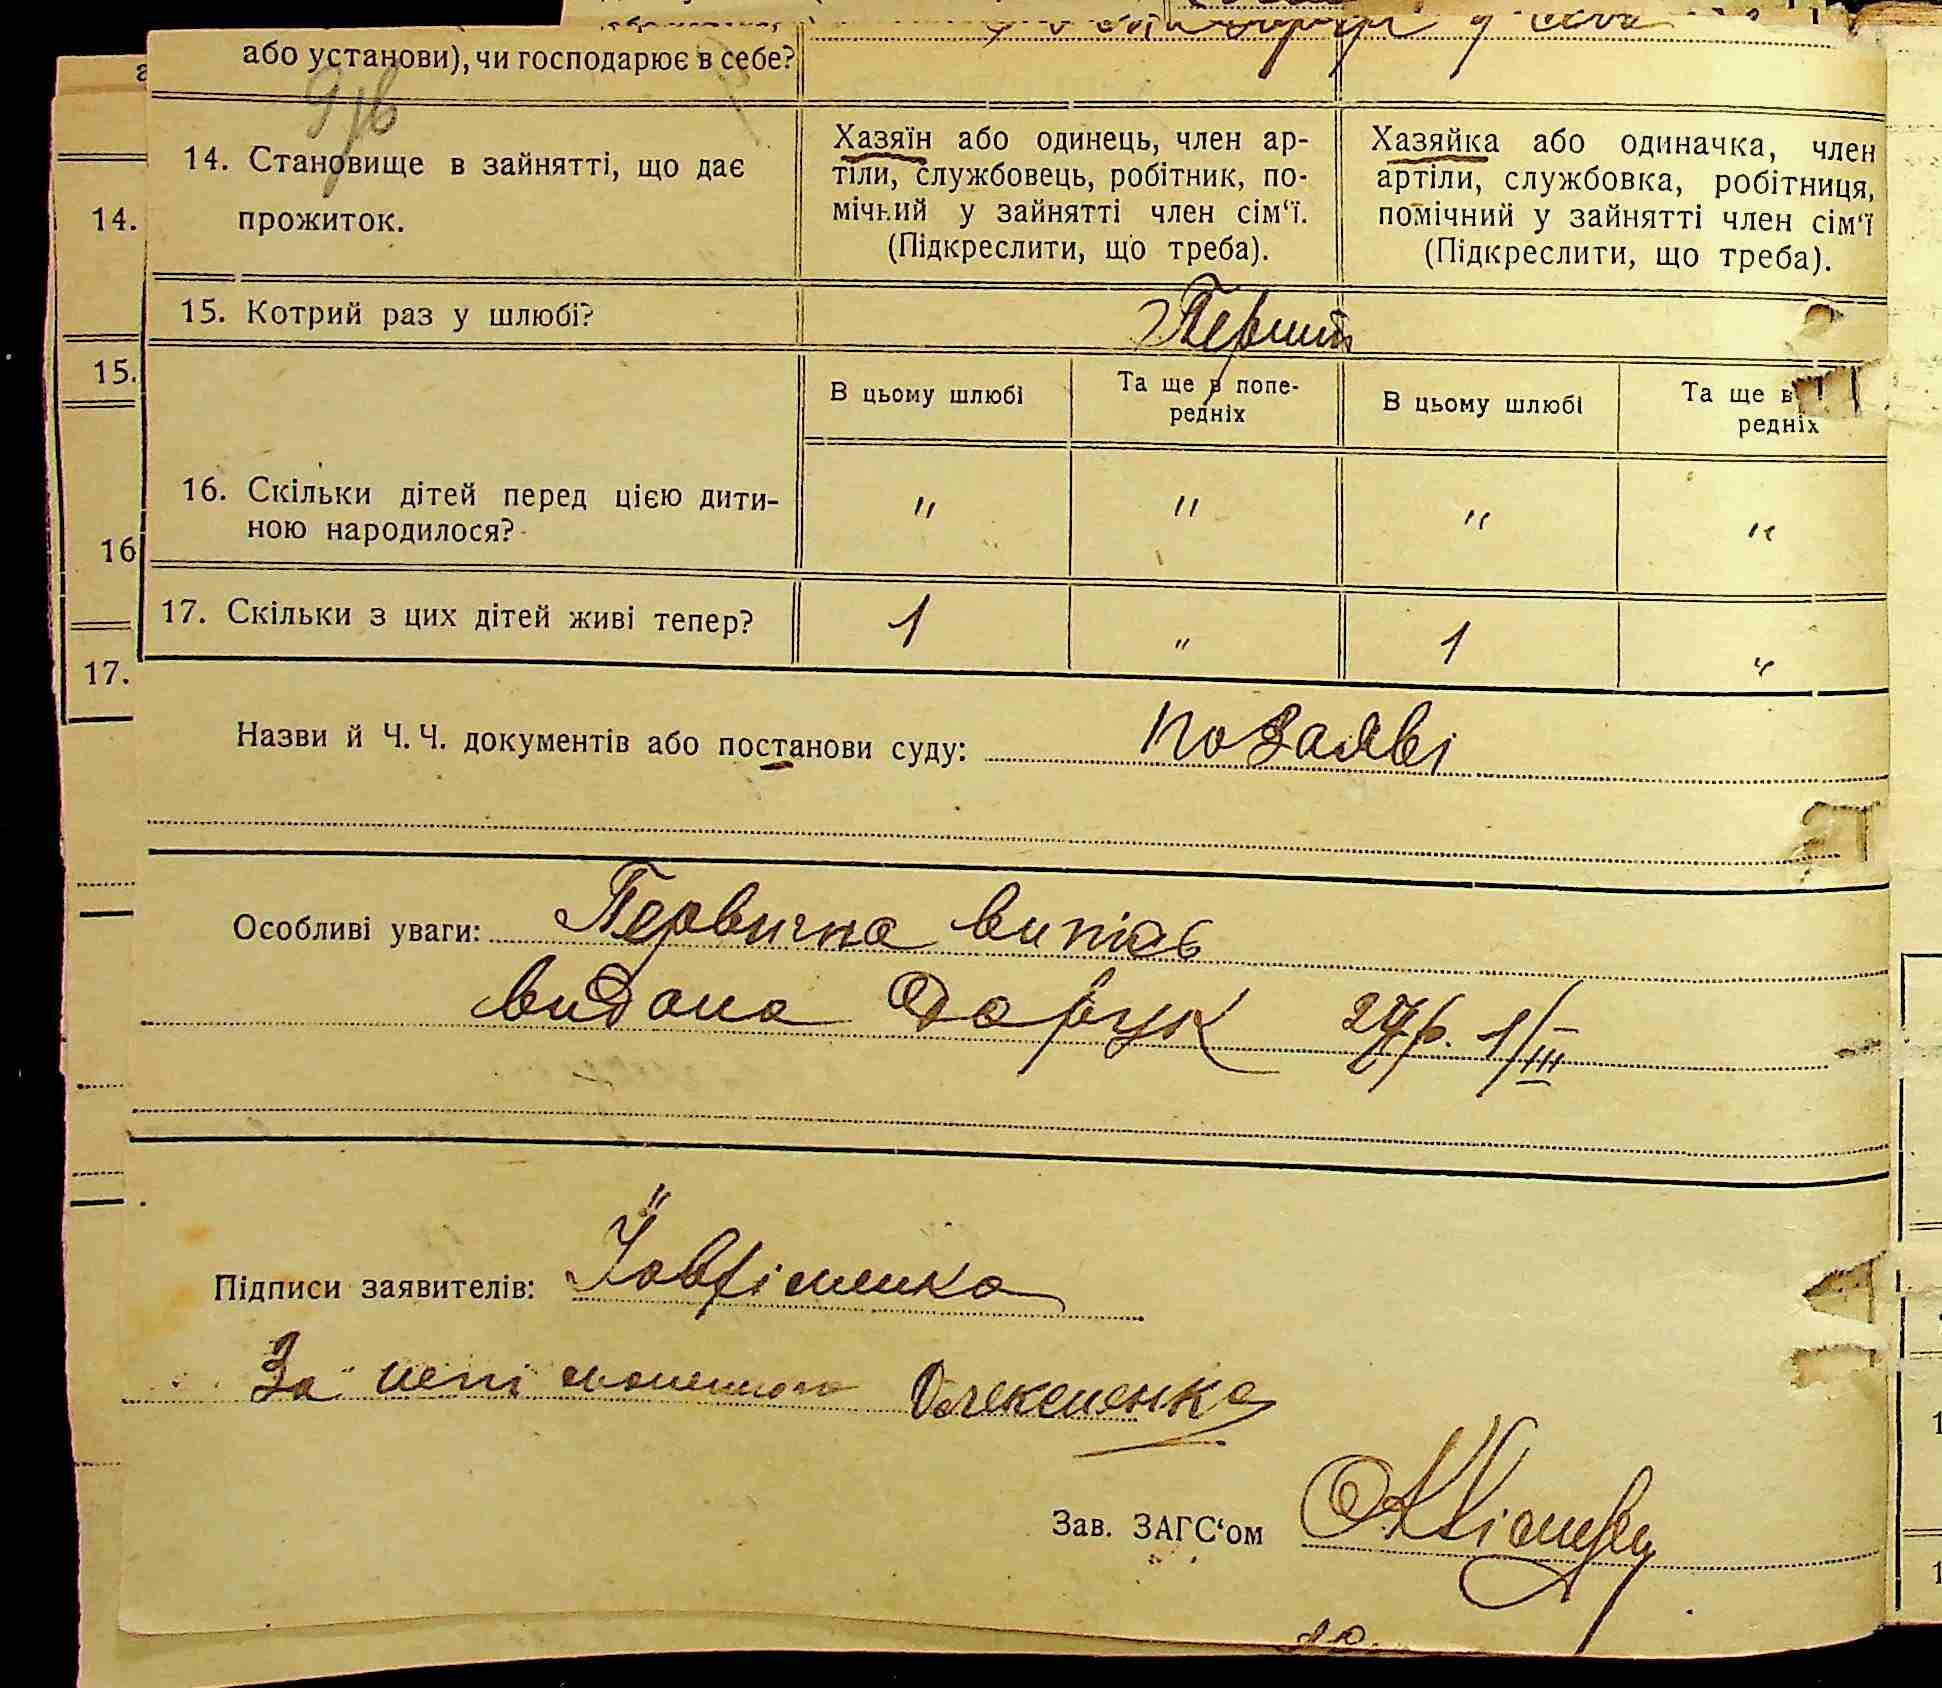 або установи), чи господарює в себе?
14. Становище в зайнятті, що дає
прожиток.
Хазяїн або одинець, член ар-
тіли, службовець, робітник, по-
мічний у зайнятті член сім‘ї.
(Підкреслити, що треба).
Хазяйка або одиначка, член
артіли, службовка, робітниця,
помічний у зайнятті член сім‘ї
(Підкреслити, що треба).
14.
15. Котрий раз у шлюбі?
15.
В цьому шлюбі
Та ще в попе-
редніх
В цьому шлюбі
Та ще в
редніх
16. Скільки дітей перед цією дити-
ною народилося?
" " " "
16
17. Скільки з цих дітей живі тепер?
1 " 1 "
17.
Назви й Ч. Ч. документів або постанови суду: по заяві
Особливі уваги: Первична випись
видана 1/III
Підписи заявителів:
За Олексіенко
Зав. ЗАГС‘ом